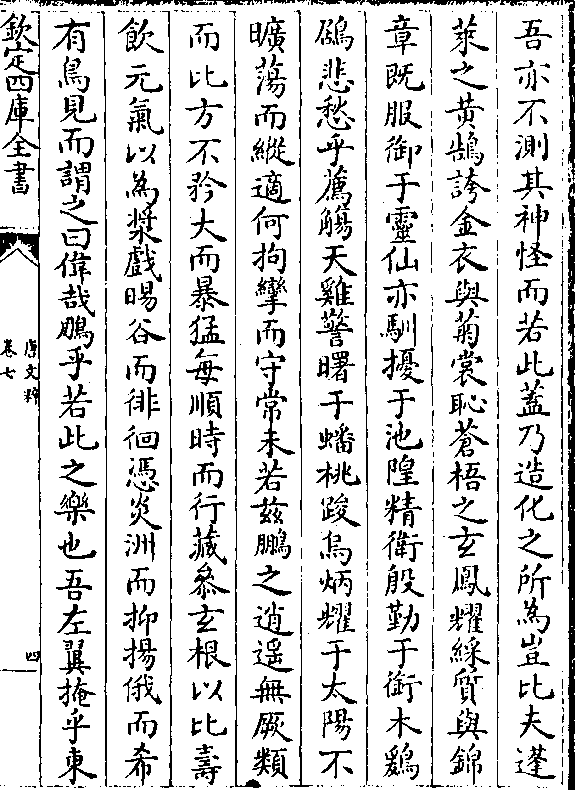 吾亦不測其神怪而若此蓋乃造化之所為豈比夫蓬
萊之黃鵠誇金衣與菊裳恥蒼梧之玄鳳耀綵質與錦
章既服御于靈仙亦馴擾于池隍精衛殷勤于銜木鶢
鶋悲愁乎薦觴天雞警曙于蟠桃踆烏炳耀于太陽不
曠蕩而縱適何拘攣而守常未若兹鵬之逍遥無厥類
而比方不矜大而暴猛每順時而行藏參玄根以比壽
飲元氣以為漿戲暘谷而徘徊憑炎洲而抑揚俄而希
有鳥見而謂之曰偉哉鵬乎若此之樂也吾左翼掩乎東
欽定四庫全書
唐文粹
卷七
四